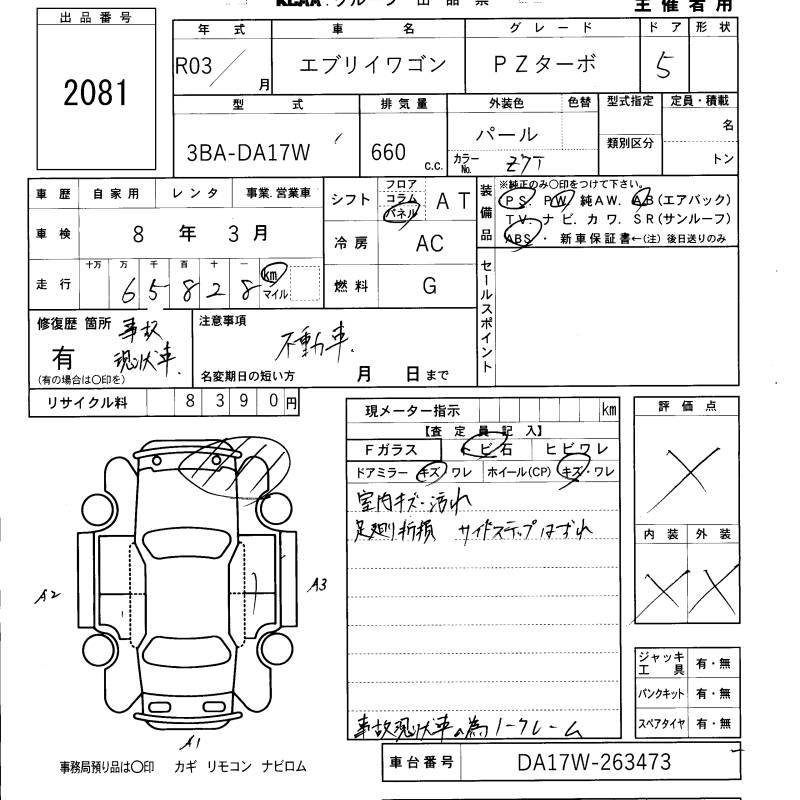 KCAA グループ 出品票
主催者用
出品番号
2081
年式 車名 グレード ドア 形状
R03/ 月 エブリイワゴン PZターボ 5
型式 排気量 外装色 色替 型式指定 定員・積載
3BA-DA17W 660 c.c. パール 類別区分 名
カラーNo. Z7T トン
車歴 自家用 レンタ 事業.営業車
シフト フロア コラム パネル AT
装備品 ※純正のみ〇印をつけて下さい。
PS. PW 純AW. AB(エアバック)
TV. ナビ. カワ. SR(サンルーフ)
ABS・ 新車保証書←(注) 後日送りのみ
車検 8 年 3 月
冷房 AC
走行 十万 万 千 百 十 一
6 5 8 2 8 km マイル
燃料 G
セールスポイント
修復歴 箇所 事故
有 現状車.
(有の場合は〇印を)
注意事項
不動車.
名変期日の短い方 月 日まで
リサイクル料 8390円
現メーター指示 km
【査定員記入】
Fガラス トビ石 ヒビワレ
ドアミラー キズ・ワレ ホイール(CP) キズ・ワレ
室内キズ・汚れ
足廻り折損 サイドステップはずれ
事故現状車の為ノークレーム
評価点
内装 外装
A2
A3
A1
ジャッキ工具 有・無
パンクキット 有・無
スペアタイヤ 有・無
事務局預り品は〇印 カギ リモコン ナビロム
車台番号 DA17W-263473